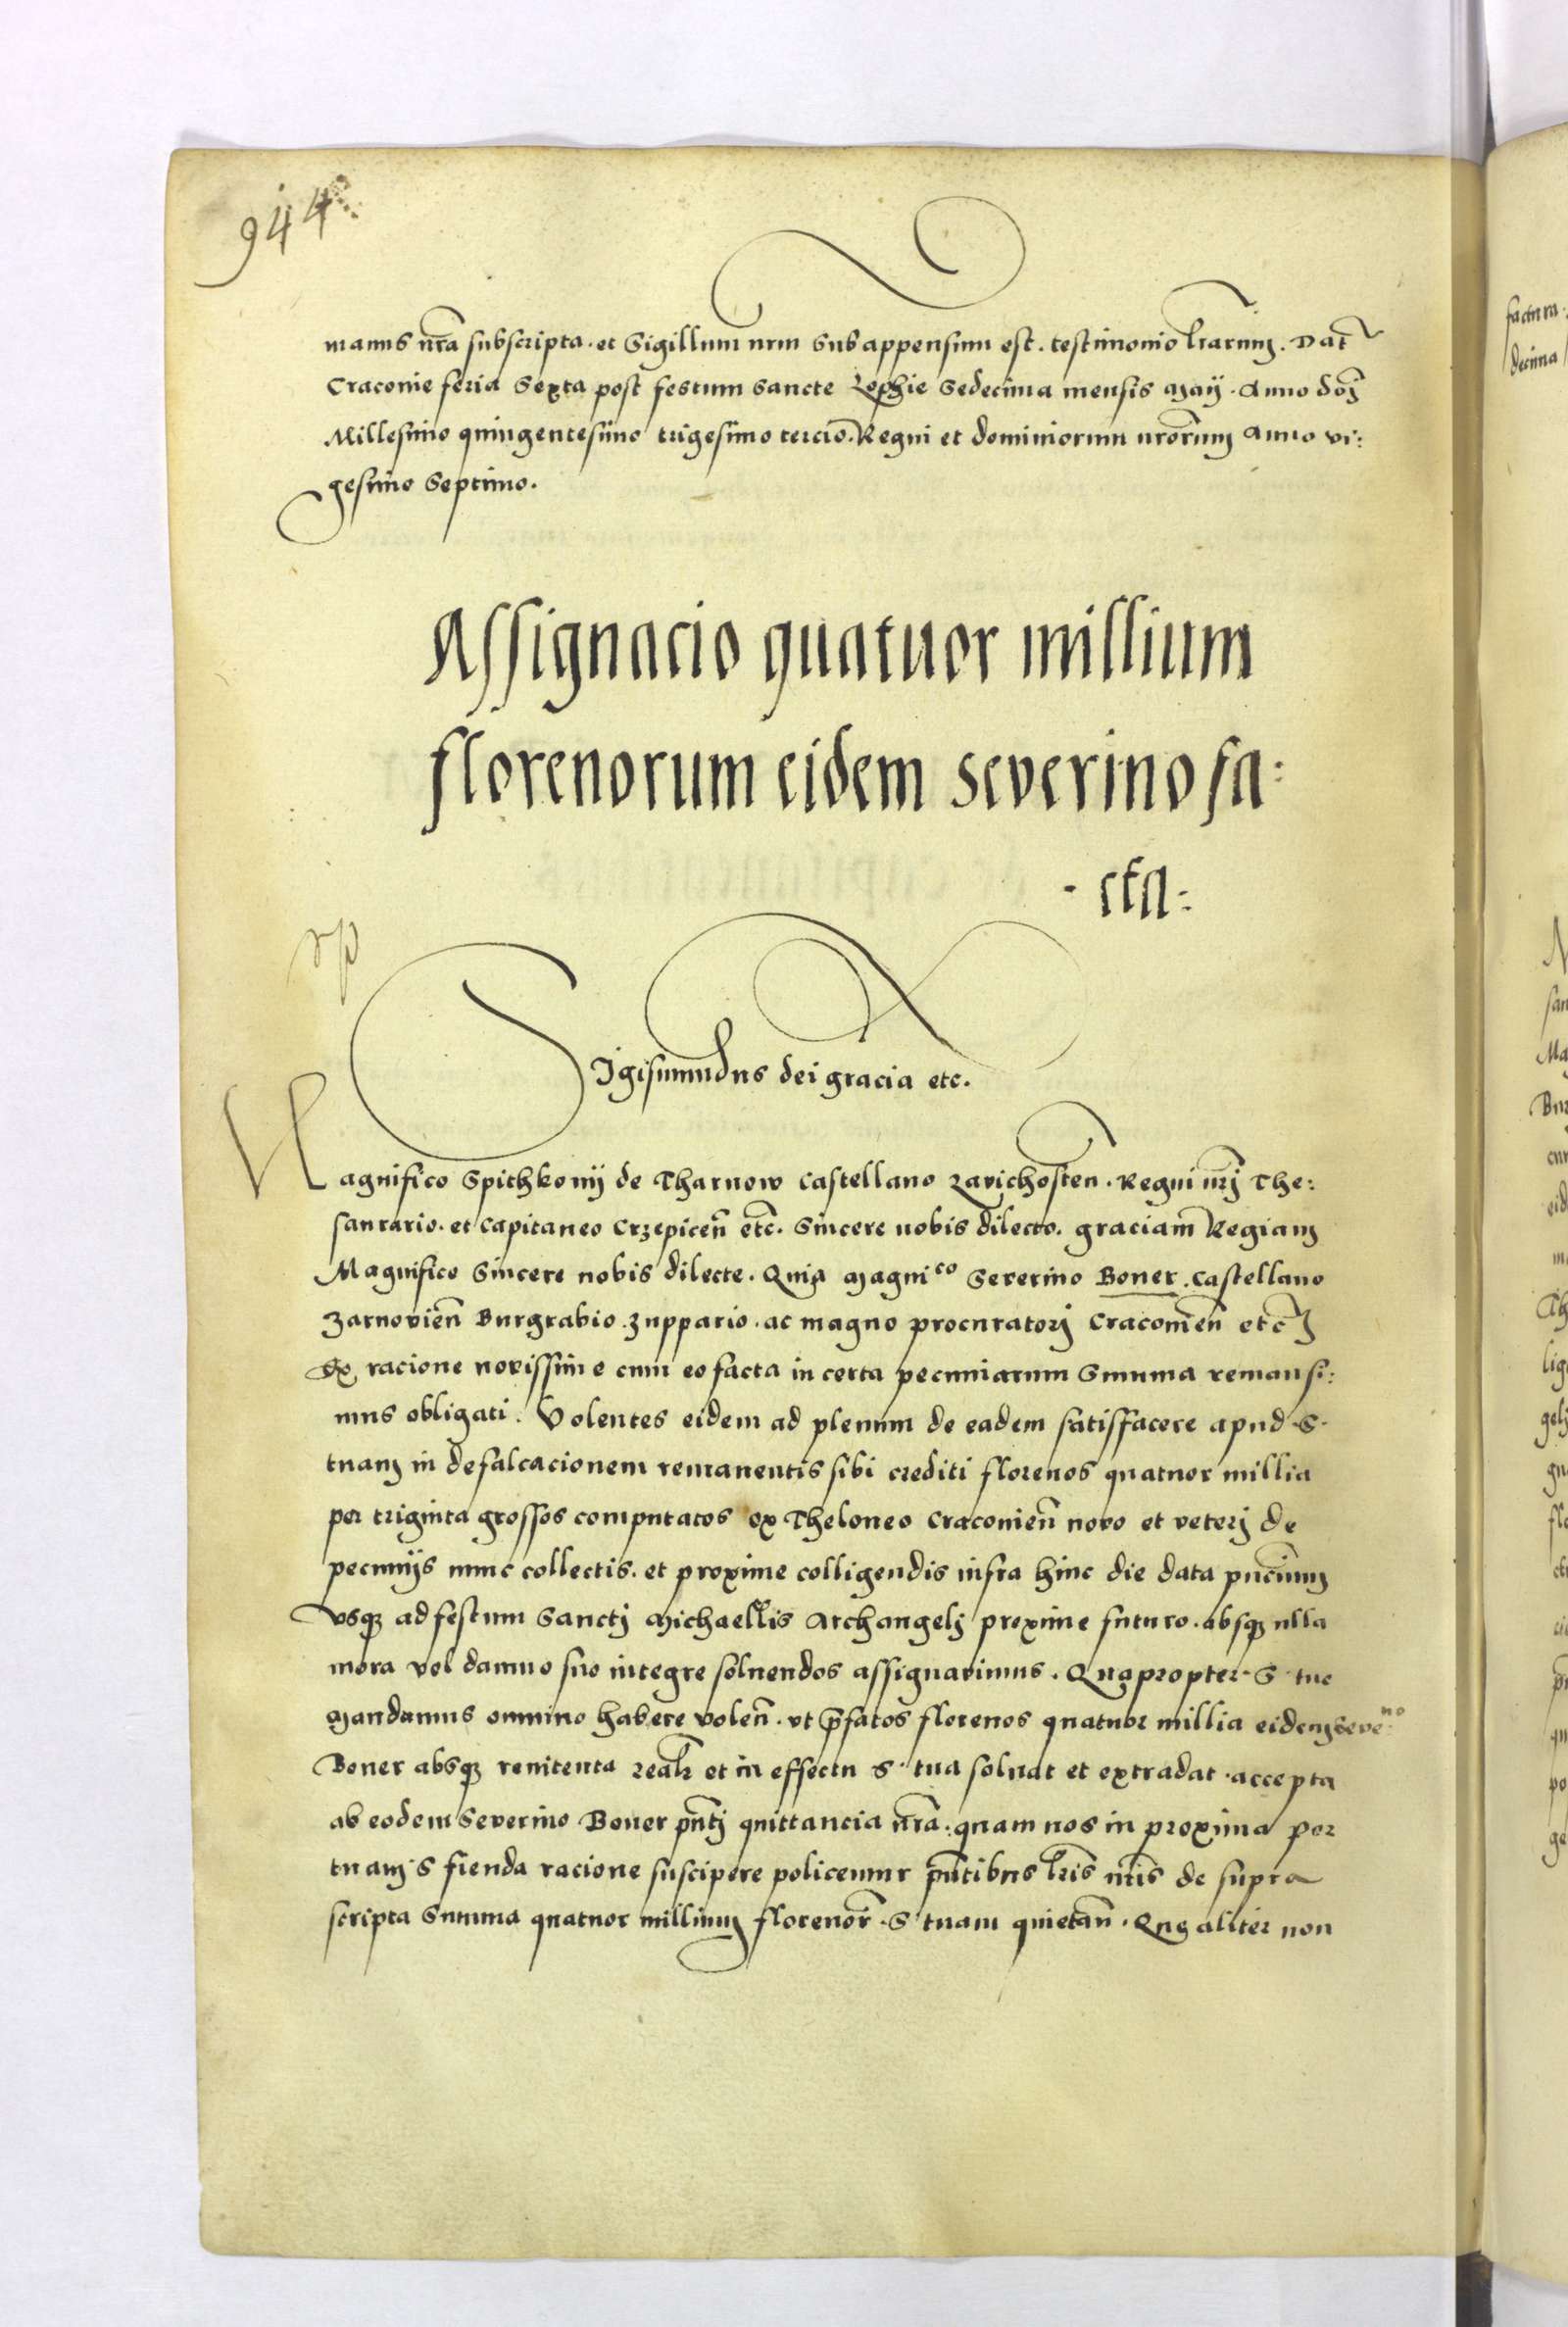 944
manus nr̃a subscripta. et Sigillum nrm̃ Subappensum est. testimonio lr̃arum. Dat̃
Craconie feria Sexta post festum Sancte Zophie Sedecima mensis Maij. Anno dñj
Millesimo quingentesimo trigesimo tercio. Regni et dominiorum nr̃orum Anno vi:
gesimo Septimo.
Assignacio quatuor millium
florenorum eidem Severino fa:
cta:
Sigismundus dei gracia etc.
Magnifico Spithkonij de Tharnow Castellano Zavichosten. Regni nr̃j The:
saurario. et Capitaneo Crzepiceñ etc̃. Sincere nobis dilecto. graciam Regiam
Magnifice Sincere nobis dilecte. Quia Magnico Severino Boner. Castellano
Zarnovieñ Burgrabio. Zuppario. ac magno procuratorj Cracovieñ etc̃
Ex racione novissime cum eo facta in certa pecuniarum Summa remansi:
mus obligati. Volentes eidem ad plenum de eadem satisfacere apud. S.
tuam in defalcacionem remanentis sibi crediti florenos quatuor millia
per triginta grossos computatos ex Theloneo Cracovieñ novo et veterj de
pecunijs nunc collectis. et proxime colligendis infra hinc die data pñcium
vsqꝫ ad festum Sanctj Michaellis Archangelj proxime futuro. absqꝫ ulla
mora vel damno suo integre soluendos assignavimus. Quapropter. S. tue
Mandamus omnino habere voleñ. vt p̃fatos florenos quatuor millia eidem Seveno
Boner absqꝫ renitenta real̃r et in effectu S. tua soluat et extradat. accepta
ab eodem Severino Boner pñtj quittancia nr̃a. quam nos in proxima per
tuam. S fienda racione suscipere policemur pñtibus lr̃is nr̃is de supra
scripta Summa quatuor millium florenor̃. S. tuam quietañ. Que aliter non